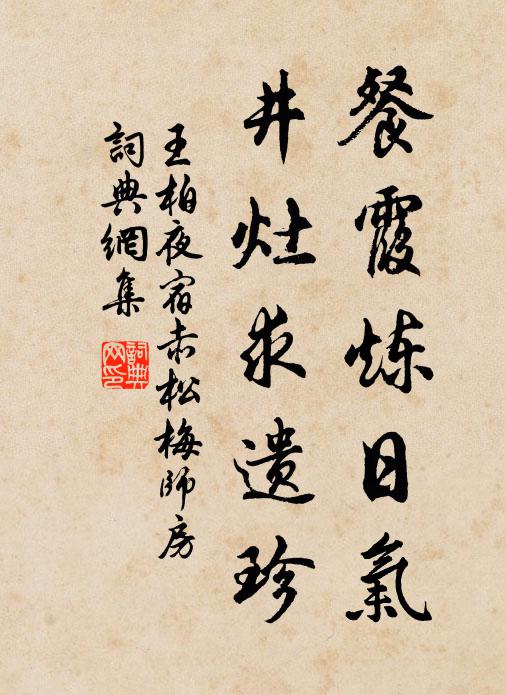 餐霞炼日氣
井灶求遗珍
王柏夜宿赤松梅師房
詞典網集
詞典
网印